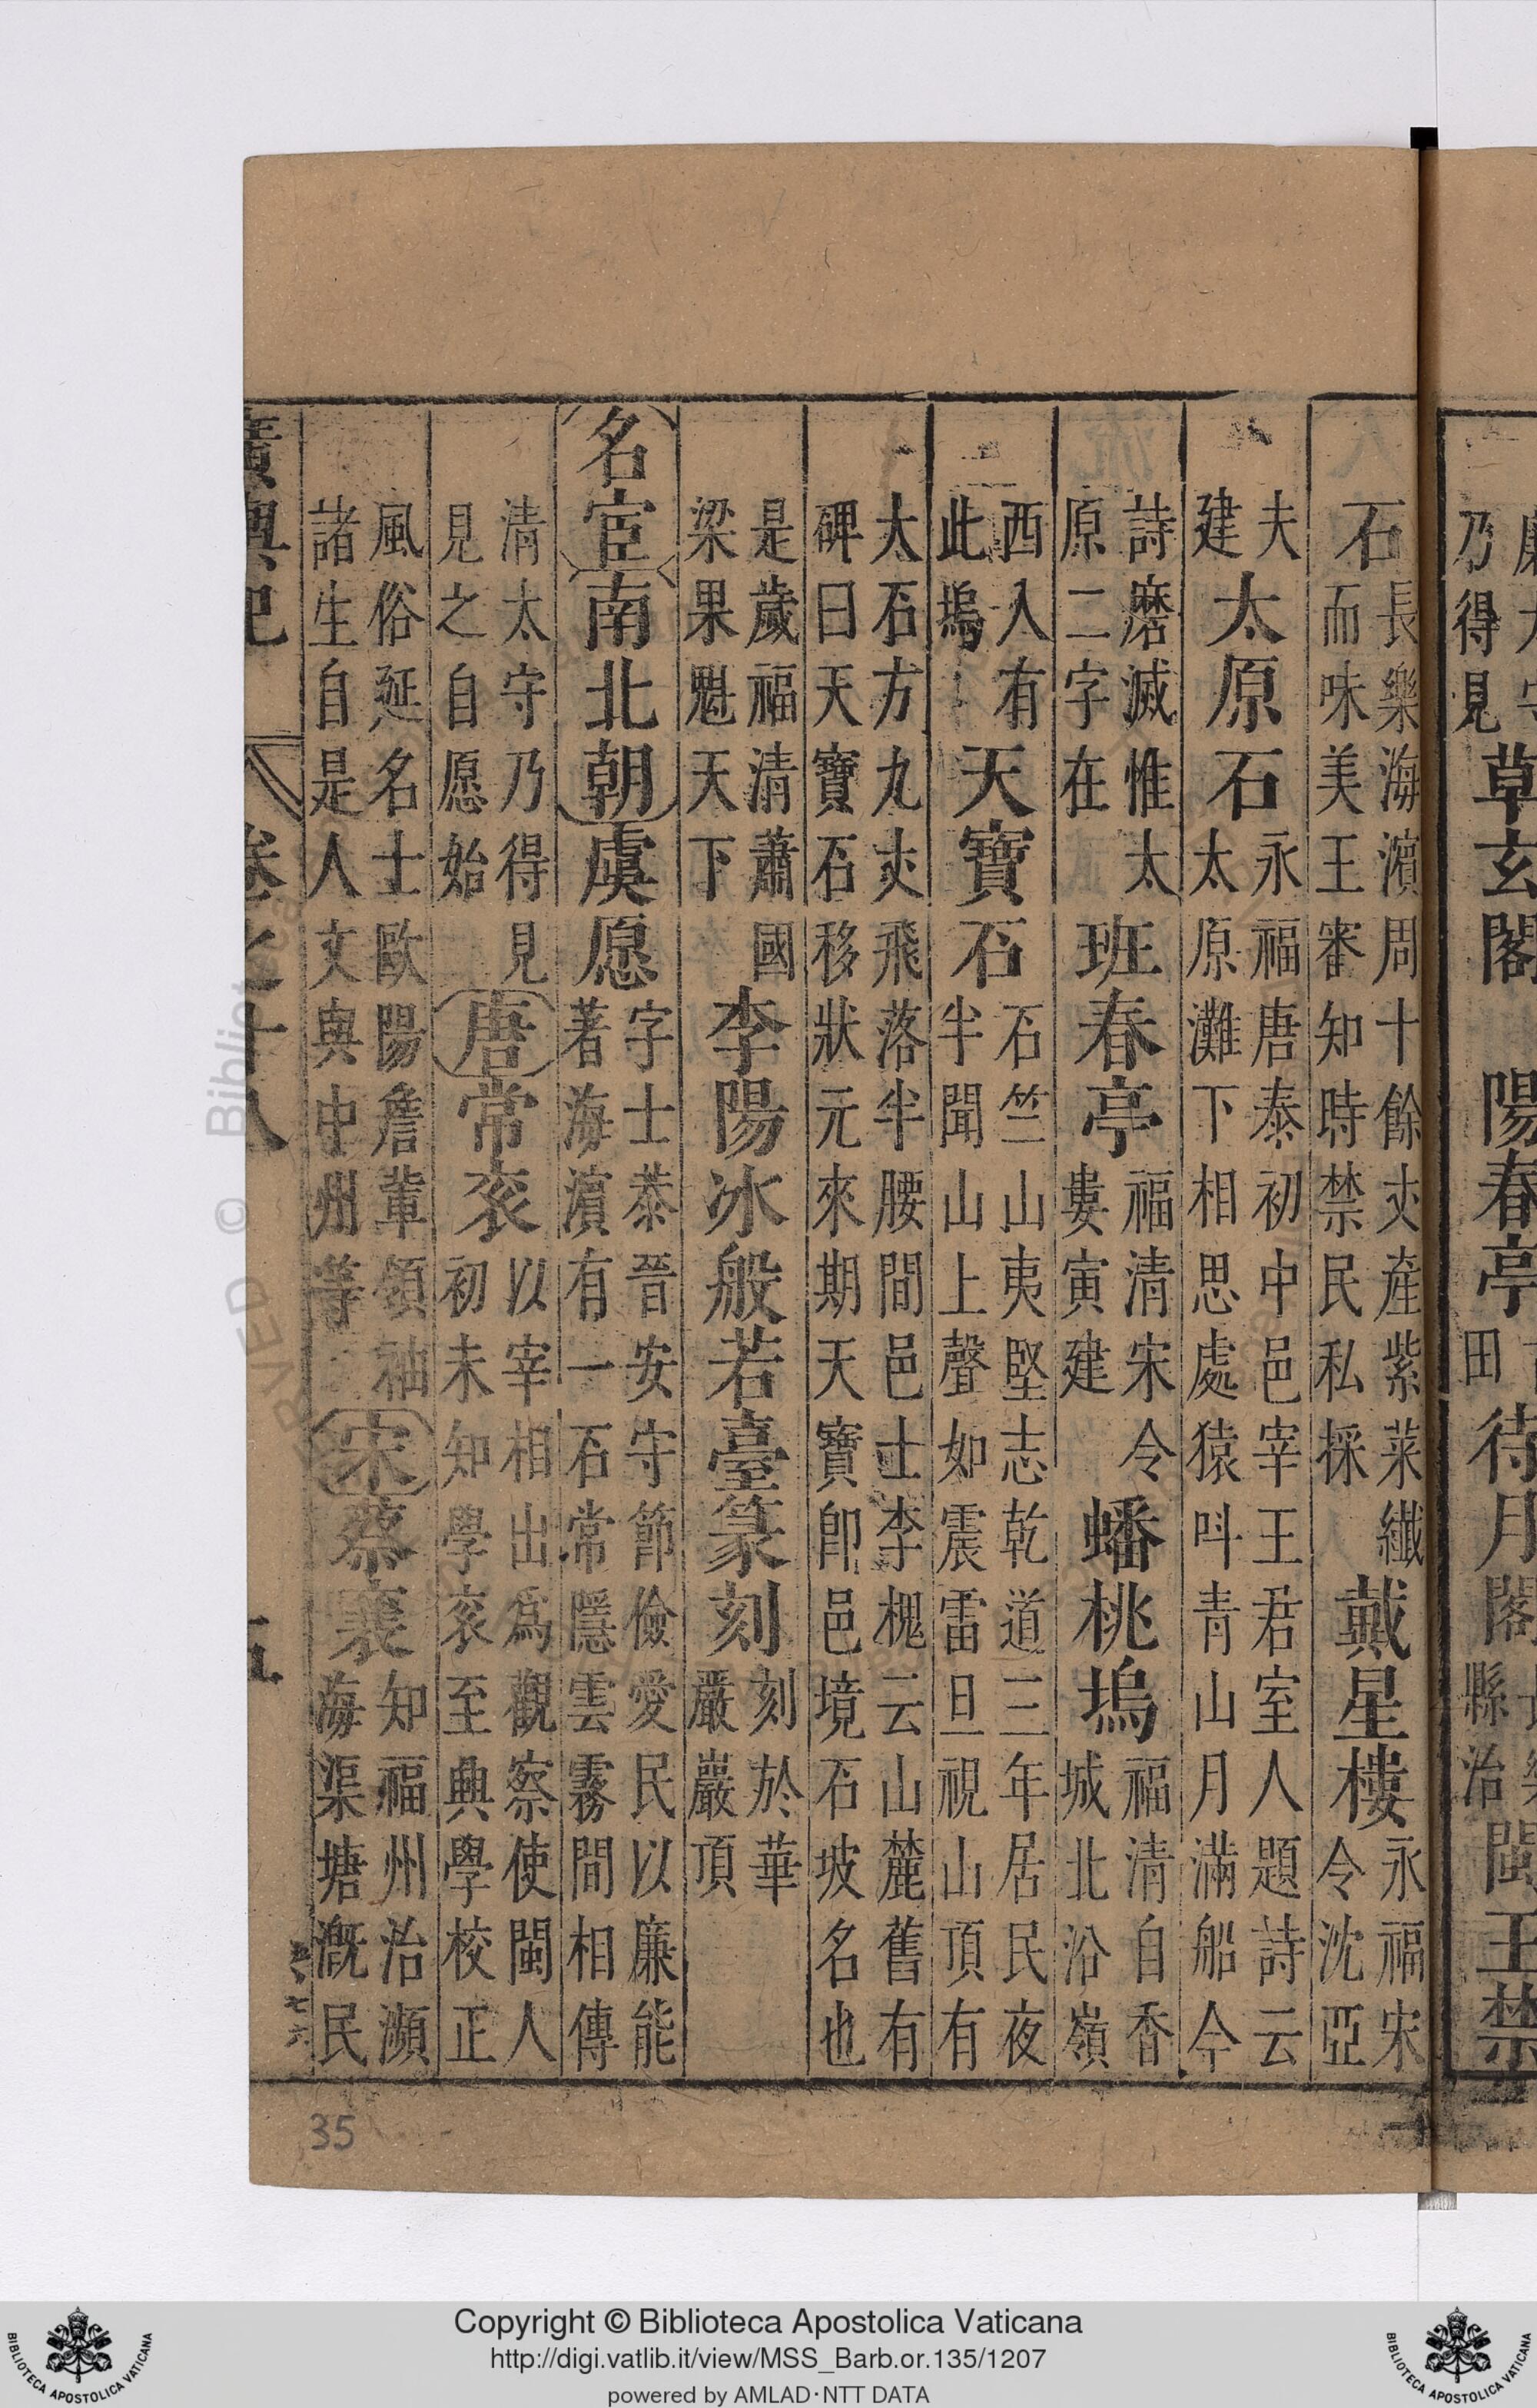 乃得見草玄閣 陽春亭 田 待月閣 縣治 閩王禁
石 長樂海濱周十餘丈產紫菜纖而味美王審知時禁民私採 戴星樓 永福宋令沈亞
夫建 太原石 永福唐泰初中邑宰王君室人題詩云太原灘下相思處猿呌青山月滿船今
詩磨滅惟太原二字在 班春亭 福清宋令婁寅建 蟠桃塢 福清自香城北沿嶺
西入有此塢 天寶石 石竺山夷堅志乾道三年居民夜半聞山上聲如震雷旦視山頂有
大石方九丈飛落半腰間邑士李槐云山麓舊有碑曰天寶石移狀元來期天寶卽邑境石坡名也
是歲福清蕭國梁果魁天下 李陽冰般若臺篆刻 刻於華嚴巖頂
名宦 南北朝 虞愿 字士恭晉安守節儉愛民以廉能著海濱有一石常隱雲霧間相傳
清太守乃得見見之自愿始 唐 常袞 以宰相出爲觀察使閩人初未知學袞至典學校正
風俗延名士歐陽詹輩領袖諸生自是人文與中州等 宋 蔡襄 知福州治瀕海渠塘漑民
廣輿記 卷之十八 五
35
Copyright © Biblioteca Apostolica Vaticana
http://digi.vatlib.it/view/MSS_Barb.or.135/1207
powered by AMLAD·NTT DATA
BIBLIOTECA APOSTOLICA VATICANA
BIBLIOTECA APOSTOLICA VATICANA